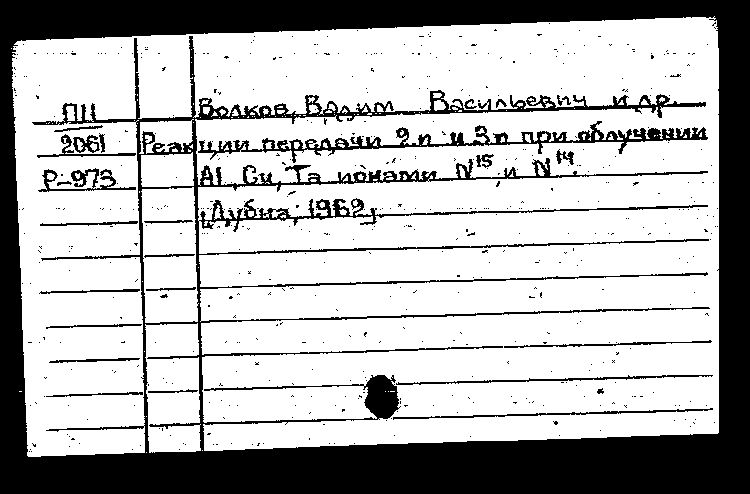 П11 Волков, Вадим Васильевич и др.
2061 Реакции передачи 2n и 3n при облучении
Р-973 Al, Cu, Ta ионами N¹⁵ и N¹⁴.
[Дубна, 1962].